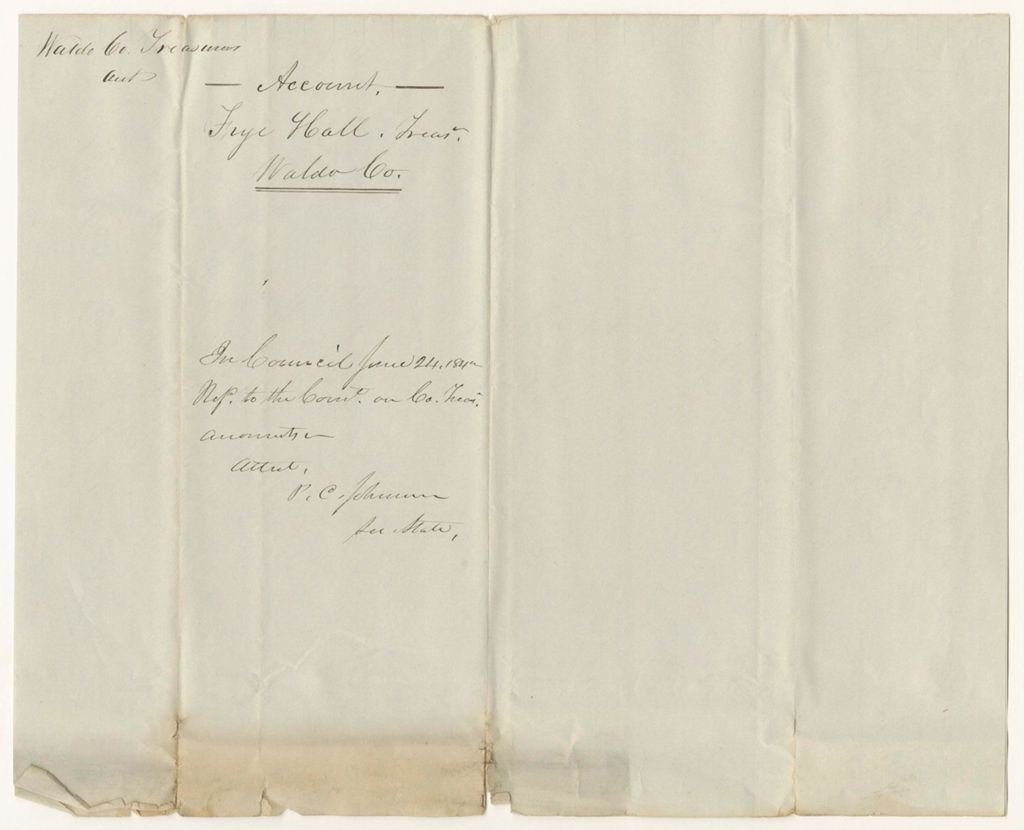 Waldo Co. Treasurers
acct
— Account. —
Frye Hall. Treasr.
Waldo Co.
In Council June 24. 1842
Ref. to the Comt. on Co. Treas.
accounts
Attest,
P. C. Johnson
Sec State,